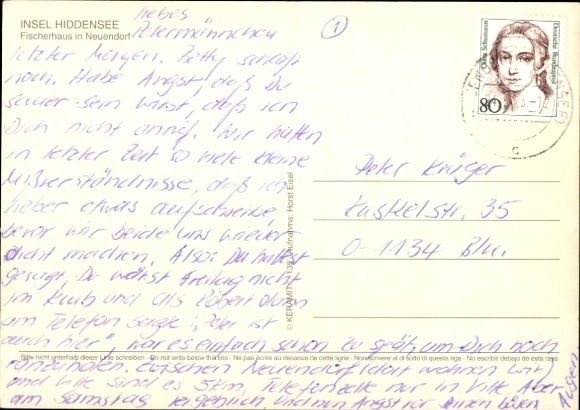 INSEL HIDDENSEE
Fischerhaus in Neuendorf
liebes
Petermännchen
①
letzter Morgen. Betty schläft
noch. Habe Angst, daß Du
sauer sein wirst, daß ich
Dich nicht anrief. Wir hatten
in letzter Zeit so viele kleine
Mißverständnisse, daß ich
lieber etwas aufschreibe,
bevor wir beide uns wieder
dicht machen. Also: Du hattest
gesagt, Du wärst Freitag nicht
im Klub und als Robert dann
am Telefon sagte, "Peter ist
auch hier", war es einfach schon zu spät, um Dich noch
ranzuholen. Zwischen Neuendorf (dort wohnen wir)
und Vitte sind es 5km, Telefonzelle nur in Vitte. Aber
am Samstag vergeblich, und nun Angst vor Deinen bösen
Augen
Clara Schumann
Deutsche Bundespost
80
Peter Krüger
Kaskelstr. 35
O-1134 Bln.
© KERAMIT / Aufnahme: Horst Eisel
Bitte nicht unterhalb dieser Linie schreiben - Do not write below tha line - Ne pas écrire au dessous de cette ligne - Non scrivere al di sotto di questa riga - No escribir debajo de esta raya